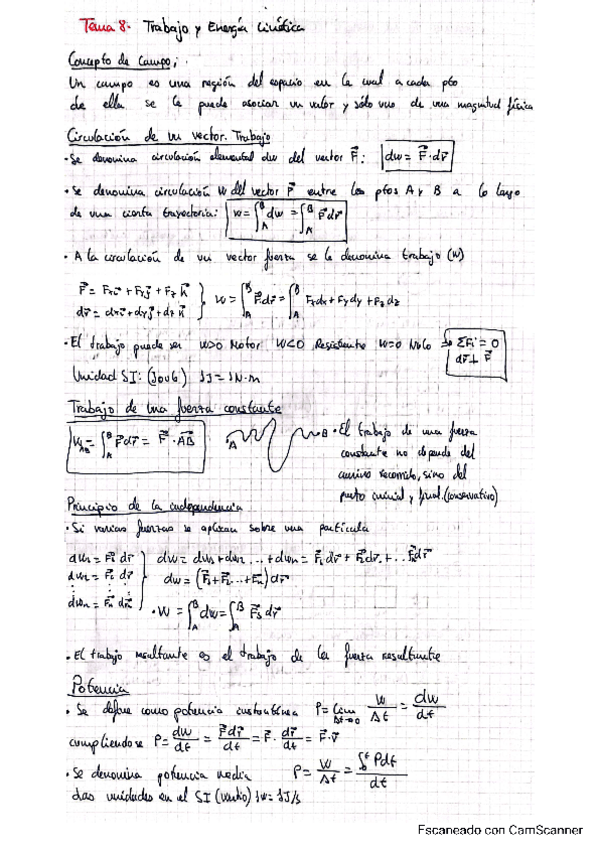 Tema 8. Trabajo y Energía Cinética
Concepto de campo;
Un campo es una región del espacio en la cual a cada pto
de ella se le puede asociar un valor y sólo uno de una magnitud física
Circulación de un vector. Trabajo
• Se denomina circulación elemental dw del vector F⃗: dw = F⃗·dr⃗
• Se denomina circulación W del vector F⃗ entre los ptos A y B a lo largo
de una cierta trayectoria: W = ∫_A^B dw = ∫_A^B F⃗dr⃗
• A la circulación de un vector fuerza se le denomina trabajo (W)
F⃗ = Fxi⃗ + Fyj⃗ + Fzk⃗
dr⃗ = dxi⃗ + dyj⃗ + dzk⃗ } W = ∫_A^B F⃗dr⃗ = ∫_A^B Fxdx + Fydy + Fzdz
• El trabajo puede ser W>0 Motor W<0 Resistente W=0 Nulo → ΣFi = 0
dr⃗ ⊥ F⃗
Unidad SI: (Joule) 1J = 1N·m
Trabajo de una fuerza constante
W_AB = ∫_A^B F⃗dr⃗ = F⃗·AB⃗
A B • El trabajo de una fuerza
constante no depende del
camino recorrido, sino del
punto inicial y final. (conservativo)
Principio de la independencia
• Si varias fuerzas se aplican sobre una partícula
dw₁ = F₁⃗ dr⃗
dw₂ = F₂⃗ dr⃗
⋮ ⋮ ⋮
dwn = Fn⃗ dr⃗ } dw = dw₁ + dw₂ ... + dwn = F₁⃗dr⃗ + F₂⃗dr⃗ + ... Fn⃗dr⃗
dw = (F₁⃗ + F₂⃗ ... + Fn⃗) dr⃗
• W = ∫_A^B dw = ∫_A^B F⃗s dr⃗
• El trabajo resultante es el trabajo de la fuerza resultante
Potencia
• Se define como potencia instantánea P = Lim Δt→0 W/Δt = dw/dt
cumpliendose P = dw/dt = F⃗dr⃗/dt = F⃗· dr⃗/dt = F⃗·v⃗
• Se denomina potencia media P = W/Δt = ∫₀ᵗ Pdt/dt
das unidades en el SI (vatio) 1w = 1J/s
Escaneado con CamScanner